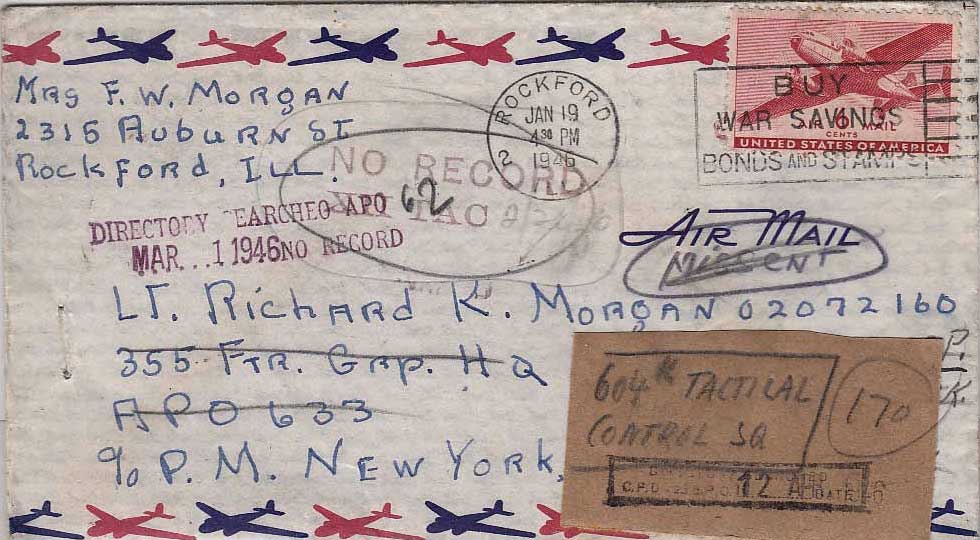 Mrs F. W. Morgan
2315 Auburn St
Rockford, Ill.
ROCKFORD
JAN 19
4 30 PM
1946
2
BUY
WAR SAVINGS
BONDS AND STAMPS
AIR 6 MAIL
CENTS
UNITED STATES OF AMERICA
NO RECORD
TAC
DIRECTORY EARCHED APO 62
MAR. . . 1 1946 NO RECORD
AIR MAIL
Missent
Lt. Richard K. Morgan 02072160
355 Ftr. Grp. HQ
APO 633
c/o P. M. New York,
604th TACTICAL
CONTROL SQ
170
12 APR